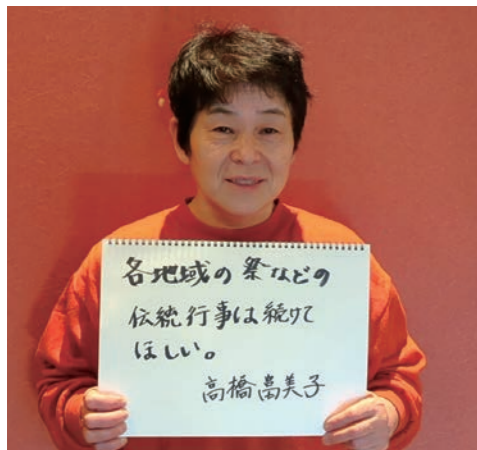 各地域の祭などの
伝統行事は続けて
ほしい。
高橋富美子